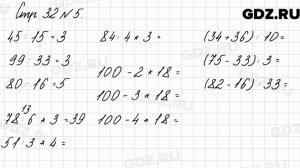 Стр. 32 №5.
GDZ.RU
45 : 15 = 3
84 : 4 * 3 =
(34+36) : 10 =
99 : 33 = 3
(75-33) : 3 =
100 - 2 * 18 =
80 : 16 = 5
(82-16) : 33 =
100 - 3 * 18 =
13
78 : 6 * 3 = 39
100 - 4 * 18 =
51 : 3 * 4 =
GDZ.RU